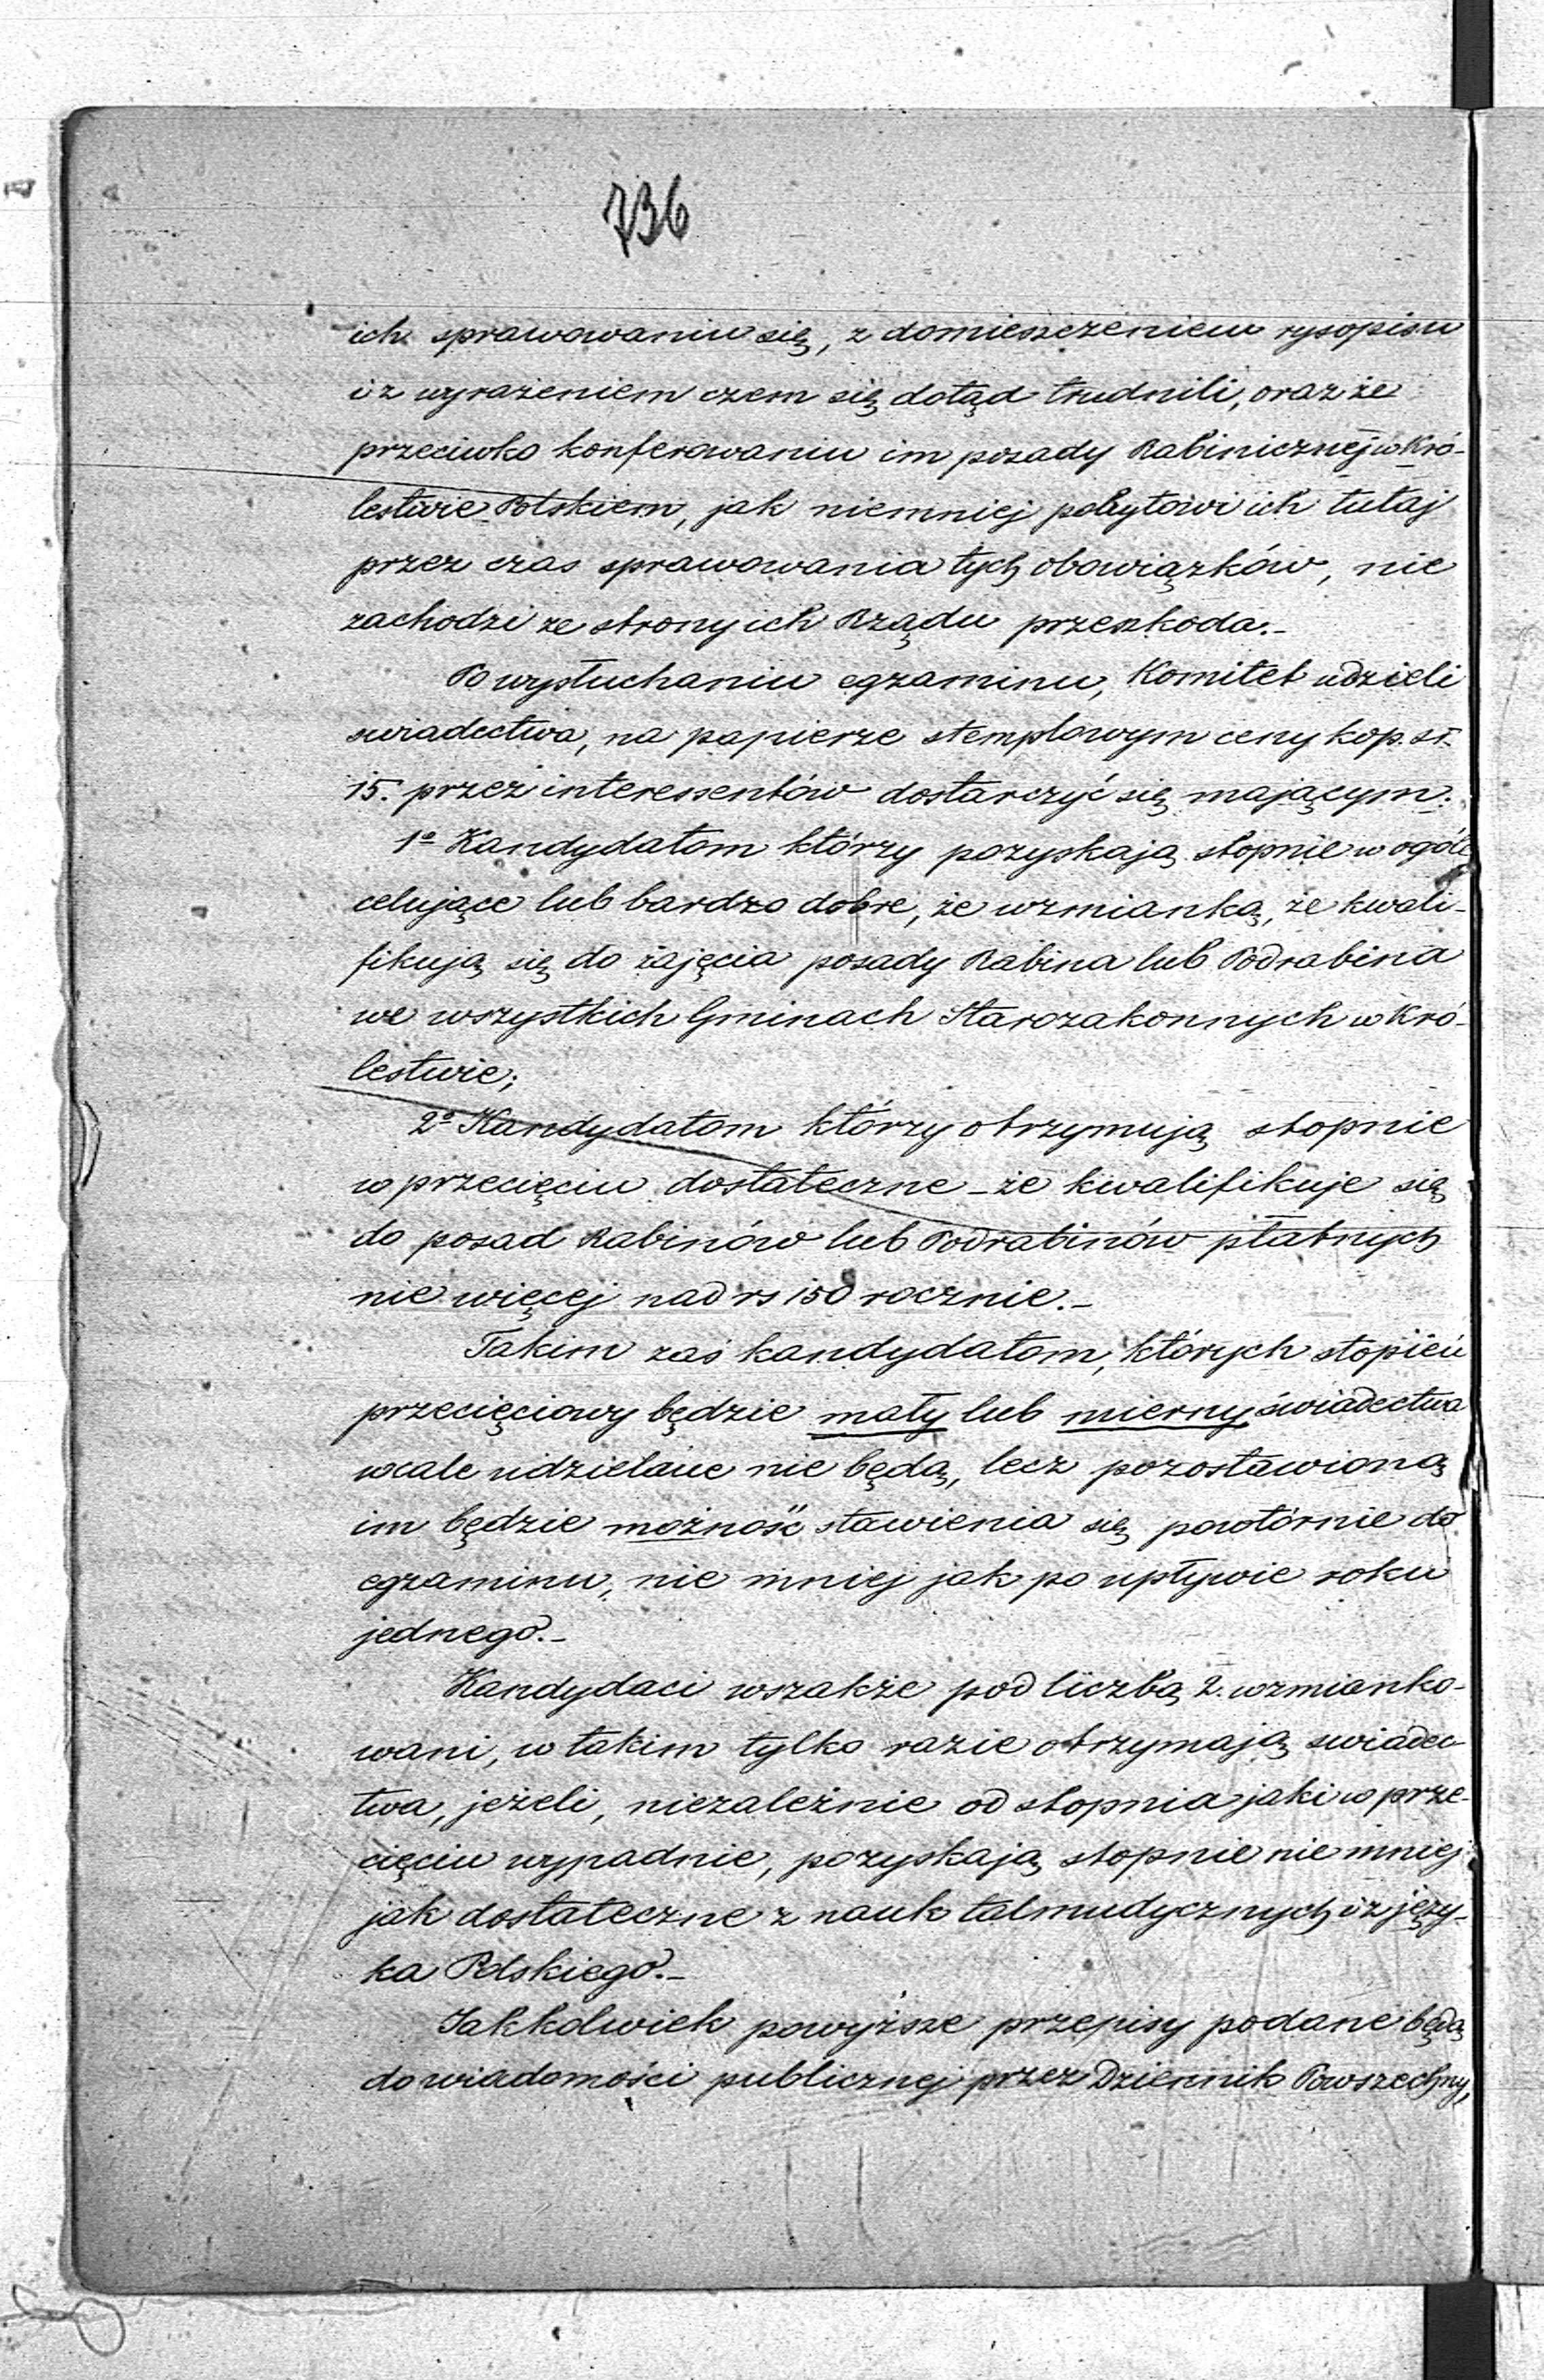 736
ich sprawowaniu się, z domieszczeniem rysopisu
i z wyrażeniem czem się dotąd trudnili, oraz że
przeciwko konferowaniu im posady Rabinicznej w Kró-
lestwie Polskiem, jak niemniej pobytowi ich tutaj
przez czas sprawowania tych obowiązków, nie
zachodzi ze strony ich Rządu przeszkoda.-
Po wysłuchaniu egzaminu, Komitet udzieli
swiadectwa, na papierze stemplowym ceny kop. sr.
15. przez interessentów dostarczyć się mającym:
1º Kandydatom którzy pozyskają stopnie w ogóle
celujące lub bardzo dobre, że wzmianką, że kwali-
fikują się do zajęcia posady Rabina lub Podrabina
we wszystkich Gminach Starozakonnych w Kró-
lestwie;
2º Kandydatom którzy otrzymują stopnie
w przecięciu dostateczne - że kwalifikuje się
do posad Rabinów lub Podrabinów płatnych
nie więcej nad rs 150 rocznie.-
Takim zaś kandydatom, których stopień
przecięciowy będzie mały lub mierny świadectwa
wcale udzielane nie będą, lecz pozostawioną
im będzie możność stawienia się powtórnie do
egzaminu, nie mniej jak po upływie roku
jednego.-
Kandydaci wszakże pod liczbą 2. wzmianko-
wani, w takim tylko razie otrzymają swiadec-
twa, jeżeli, niezależnie od stopnia jaki w prze-
cięciu wypadnie, pozyskają stopnie nie mniej
jak dostateczne z nauk talmudycznych i z języ-
ka Polskiego.-
Jakkolwiek powyższe przepisy podane będą
do wiadomości publicznej przez Dziennik Powszechny,